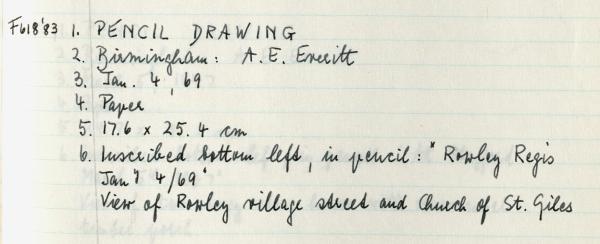 F618'83 1. PENCIL DRAWING
2. Birmingham: A.E. Everitt
3. Jan. 4, 69
4. Paper
5. 17.6 x 25.4 cm
6. Inscribed bottom left, in pencil: "Rowley Regis
Jany 4/69"
View of Rowley village street and Church of St. Giles